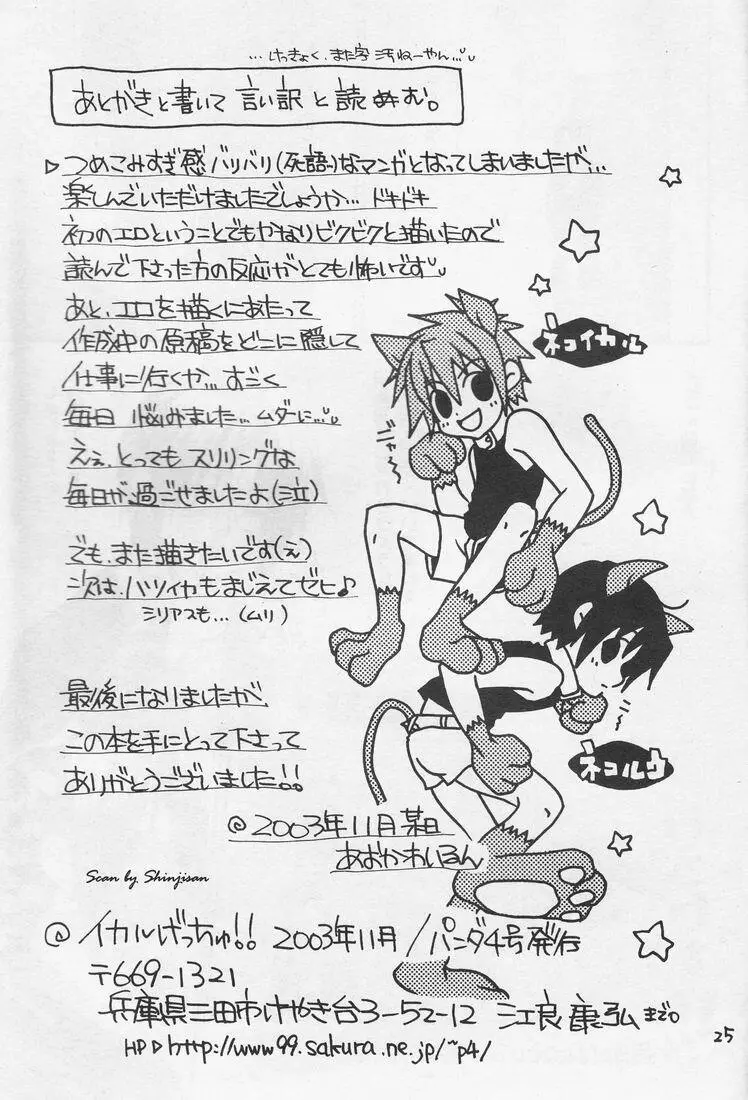 …けっきょく、また字 汚ねーやん…
あとがきと書いて 言い訳 と 読ませむ。
▷つめこみすぎ感バリバリ(死語)なマンガとなってしまいましたが…
楽しんでいただけましたでしょうか… ドキドキ
初のエロということでもかなりビクビクと描いたので
読んで下さった方の反応がとても怖いです
あと、エロを描くにあたって
作成中の原稿をどこに隠して
仕事に行くか…すごく
毎日 悩みました… ムダーに…
ええ、とっても スリリングな
毎日が過ごせましたよ(泣)
でも、また描きたいです(え)
次は、ハツイカもまじえてゼヒ♪
シリアスも…(ムリ)
ネコイカル
ニャ〜
ネコルウ
最後になりましたが、
この本を手にとって下さって
ありがとうございました!!
@2003年11月某日
あおかわいるん
Scan by Shinjisan
@ イカルげっちゅ!! 2003年11月/パンダ4号発行
〒669-1321
兵庫県三田市けやき台3-52-12 江良 康弘まで。
HP▷http://www99.sakura.ne.jp/~p4/
25